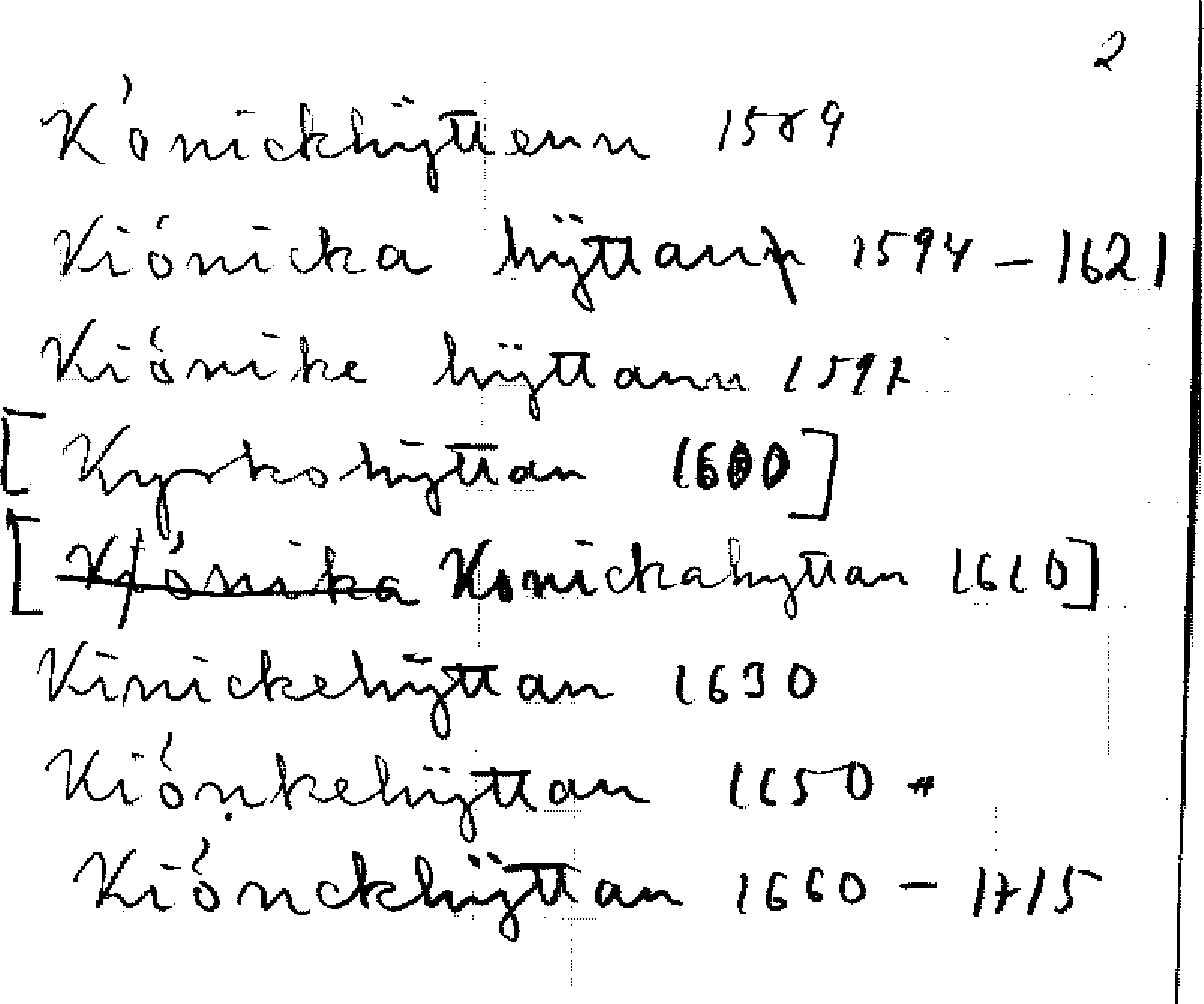 2
Kónickhÿttenn 1589
Kiónicka hÿttann 1594 – 1621
Kiónike hÿttann 1597
[Kyrkohÿttan 1600]
[Kiónika Konickahyttan 1610]
Kinickehÿttan 1630
Kiónkehÿttan 1650 *
Kiónckhÿttan 1660 – 1715